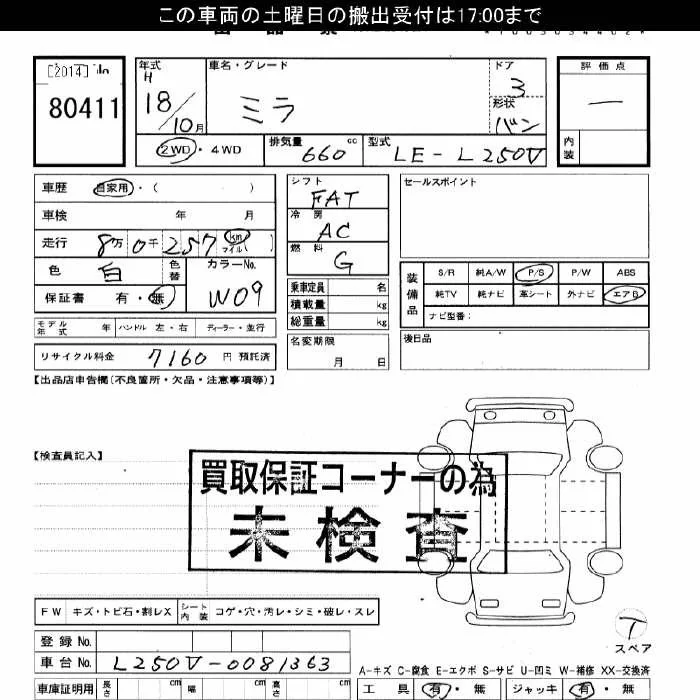 この車両の土曜日の搬出受付は17:00まで
[2014] No
80411
年式 車名・グレード ドア 評価点
H 18/10月 ミラ 3 一
形状 バン
内装
2WD・4WD 排気量 660 cc 型式 LE-L250V
車歴 自家用・( )
車検 年 月
走行 8万0千257 km マイル ( )
色 白 色替 カラーNo. W09
保証書 有・無
モデル年式 年 ハンドル 左・右 ディーラー・並行
リサイクル料金 7160 円 預託済
シフト FAT
冷房 AC
燃料 G
乗車定員 名
積載量 kg
総重量 kg
名変期限
月 日
セールスポイント
装備品
S/R 純A/W P/S P/W ABS
純TV 純ナビ 革シート 外ナビ エアB
ナビ型番:
後日品
【出品店申告欄(不良箇所・欠品・注意事項等)】
【検査員記入】
買取保証コーナーの為
未検査
FW キズ・トビ石・割レX シート内装 コゲ・穴・汚レ・シミ・破レ・スレ
スペア
登録No.
車台No. L250V-0081363
A-キズ C-腐食 E-エクボ S-サビ U-凹ミ W-補修 XX-交換済
車庫証明用 長さ cm 幅 cm 高さ cm 工具 有・無 ジャッキ 有・無